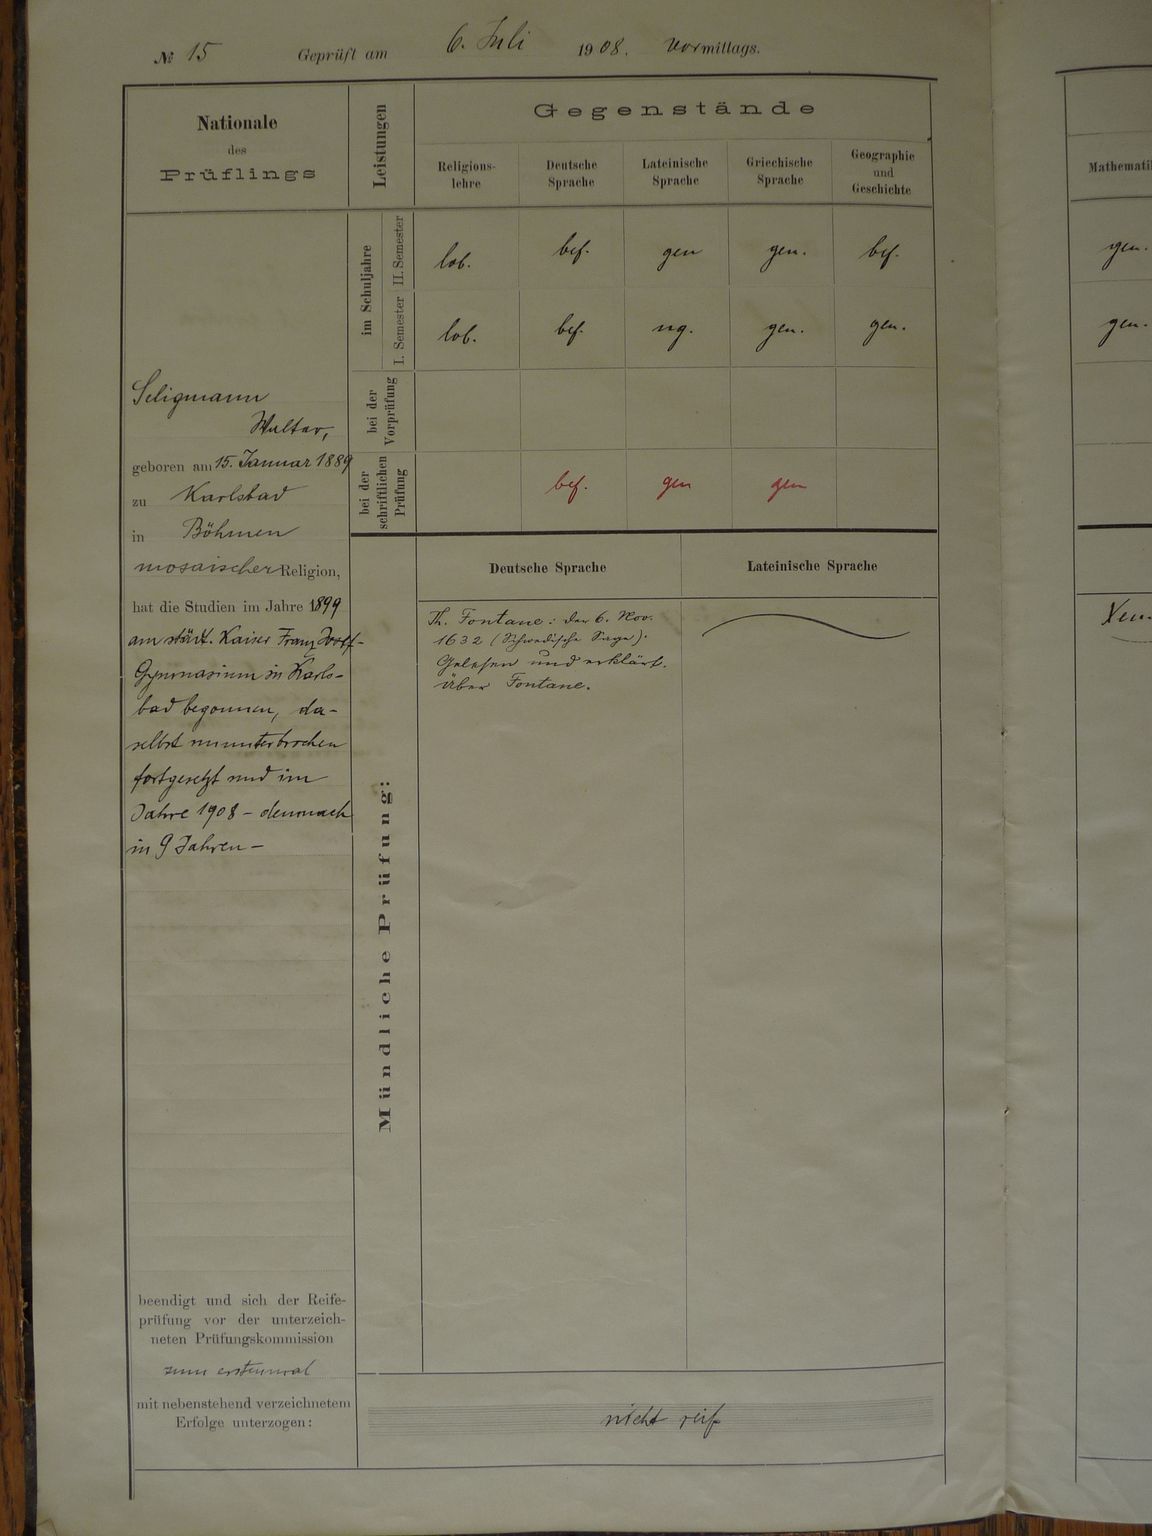 № 15 Geprüft am 6. Juli 1908. Vormittags.
Nationale
des
Prüflings
Leistungen
Gegenstände
Religions-
lehre
Deutsche
Sprache
Lateinische
Sprache
Griechische
Sprache
Geographie
und
Geschichte
Mathemati
im Schuljahre
II. Semester
lob. bef. gen gen. bef. gen.
I. Semester
lob. bef. ng. gen. gen. gen.
bei der
Vorprüfung
bei der
schriftlichen
Prüfung
bef. gen gen
Seligmann
Walter,
geboren am 15. Januar 1889
zu Karlsbad
in Böhmen
mosaischer Religion,
hat die Studien im Jahre 1899
am städt. Kaiser Franz Josef-
Gymnasium in Karls-
bad begonnen, da-
selbst ununterbrochen
fortgesetzt und im
Jahre 1908 - demnach
in 9 Jahren -
beendigt und sich der Reife-
prüfung vor der unterzeich-
neten Prüfungskommission
zum erstenmal
mit nebenstehend verzeichnetem
Erfolge unterzogen:
Mündliche Prüfung:
Deutsche Sprache
Th. Fontane: der 6. Nov.
1632 (Schwedische Sage).
Gelesen und erklärt.
Über Fontane.
Lateinische Sprache
nicht reif